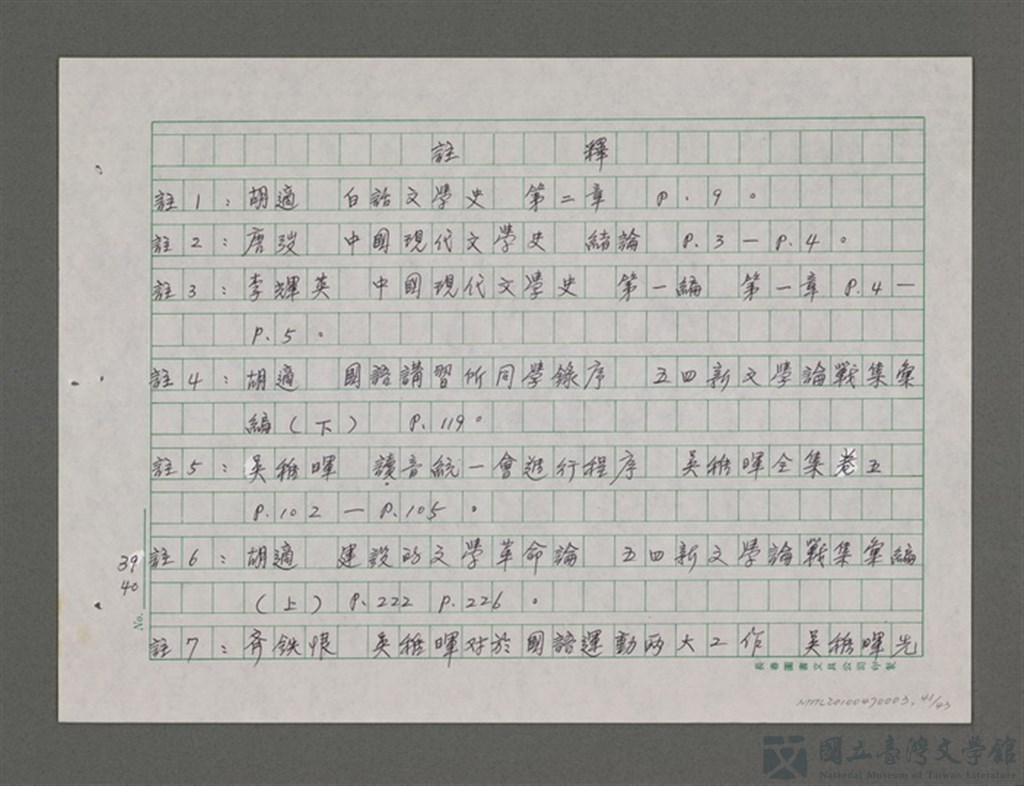 註 釋
註1：胡適 白話文學史 第二章 P.9。
註2：唐弢 中國現代文學史 緒論 P.3—P.4。
註3：李輝英 中國現代文學史 第一編 第一章 P.4—
P.5。
註4：胡適 國語講習所同學錄序 五四新文學論戰集彙
編（下） P.119。
註5：吳稚暉 讀音統一會進行程序 吳稚暉全集卷五
P.102—P.105。
註6：胡適 建設的文學革命論 五四新文學論戰集彙編
（上）P.222 P.226。
註7：齊鉄恨 吳稚暉对於國語運動两大工作 吳稚暉先
39
40
No.
長春圖書文具公司印製
NMTL20100470003, 41/43
國立臺灣文學館
National Museum of Taiwan Literature